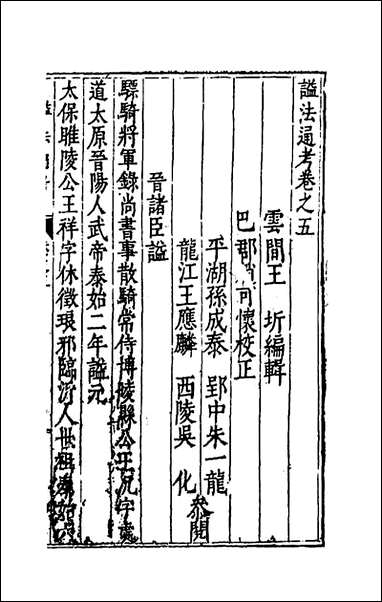 諡法通考卷之五
雲間王 圻編輯
巴郡趙可懷校正
平湖孫成泰 郢中朱一龍
龍江王應麟 西陵吳 化
參閱
晉諸臣諡
驃騎將軍錄尚書事散騎常侍博陵縣公王沉字處
道太原晉陽人武帝泰始二年諡元
太保睢陵公王祥字休徵琅邪臨沂人世祖泰始